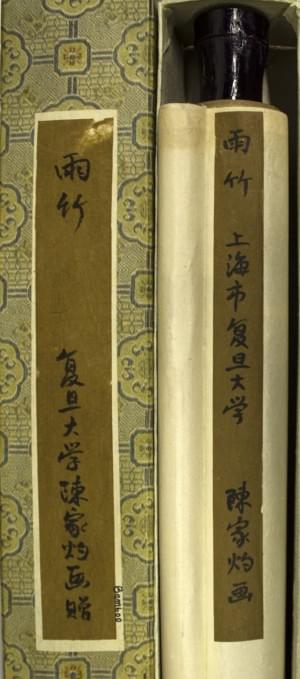 雨竹 复旦大学陳家灼画贈
Bamboo
雨竹 上海市复旦大学 陳家灼画